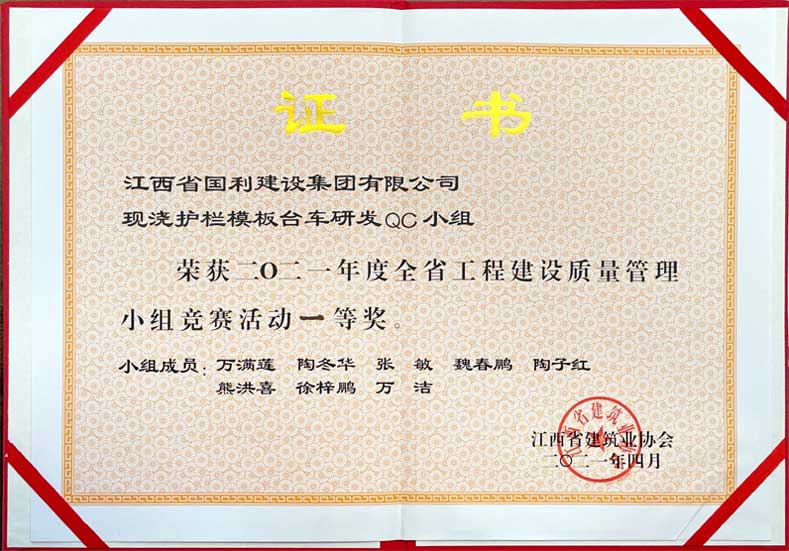 证 书
江西省国利建设集团有限公司
现浇护栏模板台车研发QC小组
荣获二〇二一年度全省工程建设质量管理
小组竞赛活动一等奖。
小组成员：万满莲 陶冬华 张 敏 魏春鹏 陶子红
熊洪喜 徐梓鹏 万 洁
江西省建筑业协会
二〇二一年四月
江西省建筑业协会